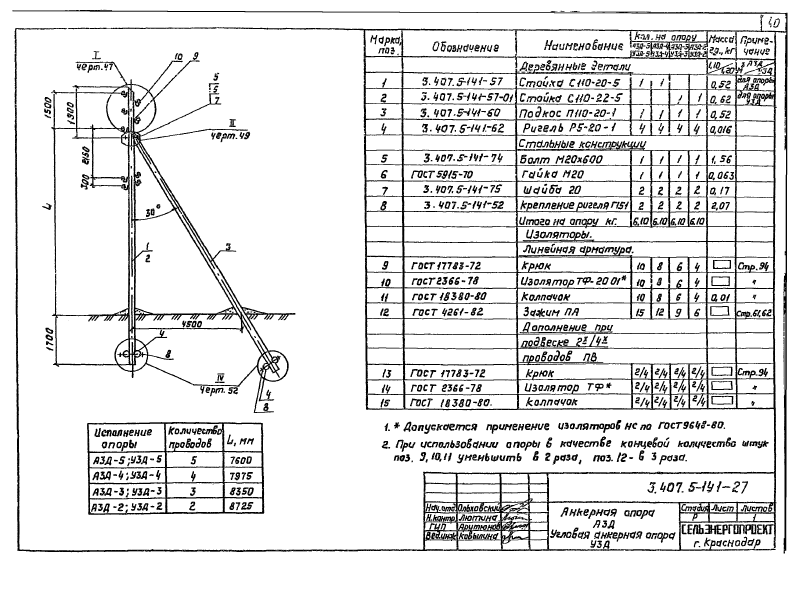 40
I
черт.47
10
9
5
6
7
II
черт.49
1500
1300
2160
300
L
30°
1
2
3
4500
1700
4
8
IV
черт.52
4
8
Исполнение опоры Количество проводов L, мм
АЗД-5; УЗД-5 5 7600
АЗД-4; УЗД-4 4 7975
АЗД-3; УЗД-3 3 8350
АЗД-2; УЗД-2 2 8725
Марка, поз. Обозначение Наименование Кол. на опору Масса ед., кг Приме-чание
АЗД-5 АЗД-4 АЗД-3 АЗД-2
УЗД-5 УЗД-4 УЗД-3 УЗД-2
Деревянные детали
1 3.407.5-141-57 Стойка С110-20-5 1 1 0,52 для опоры АЗД
2 3.407.5-141-57-01 Стойка С110-22-5 1 1 0,62 для опоры УЗД
3 3.407.5-141-60 Подкос П110-20-1 1 1 1 1 0,52
4 3.407.5-141-62 Ригель Р5-20-1 4 4 4 4 0,016
Стальные конструкции
5 3.407.5-141-74 Болт М20х600 1 1 1 1 1,56
6 ГОСТ 5915-70 Гайка М20 1 1 1 1 0,063
7 3.407.5-141-75 Шайба 20 2 2 2 2 0,17
8 3.407.5-141-52 Крепление ригеля Г151 2 2 2 2 2,07
Итого на опору кг. 6,10 6,10 6,10 6,10
Изоляторы.
Линейная арматура.
9 ГОСТ 17783-72 Крюк 10 8 6 4 Стр.94
10 ГОСТ 2366-78 Изолятор ТФ-20 01* 10 8 6 4 "
11 ГОСТ 18380-80 Колпачок 10 8 6 4 0,01 "
12 ГОСТ 4261-82 Зажим ПА 15 12 9 6 Стр.61,62
Дополнение при
подвеске 2х/4х
проводов ПВ
13 ГОСТ 17783-72 Крюк 2/4 2/4 2/4 2/4 Стр.94
14 ГОСТ 2366-78 Изолятор ТФ* 2/4 2/4 2/4 2/4 "
15 ГОСТ 18380-80. Колпачок 2/4 2/4 2/4 2/4 "
1. * Допускается применение изоляторов НС по ГОСТ 9648-80.
2. При использовании опоры в качестве концевой количество штук
поз. 9,10,11 уменьшить в 2 раза, поз.12- в 3 раза.
3.407.5-141-27
Нач.отд. Ольховский
Н.контр. Лютина
ГИП Арутюнов
Вед.инж. Ковылина
Анкерная опора
АЗД
Угловая анкерная опора
УЗД
Стадия Лист Листов
Р 1
СЕЛЬЭНЕРГОПРОЕКТ
г. Краснодар